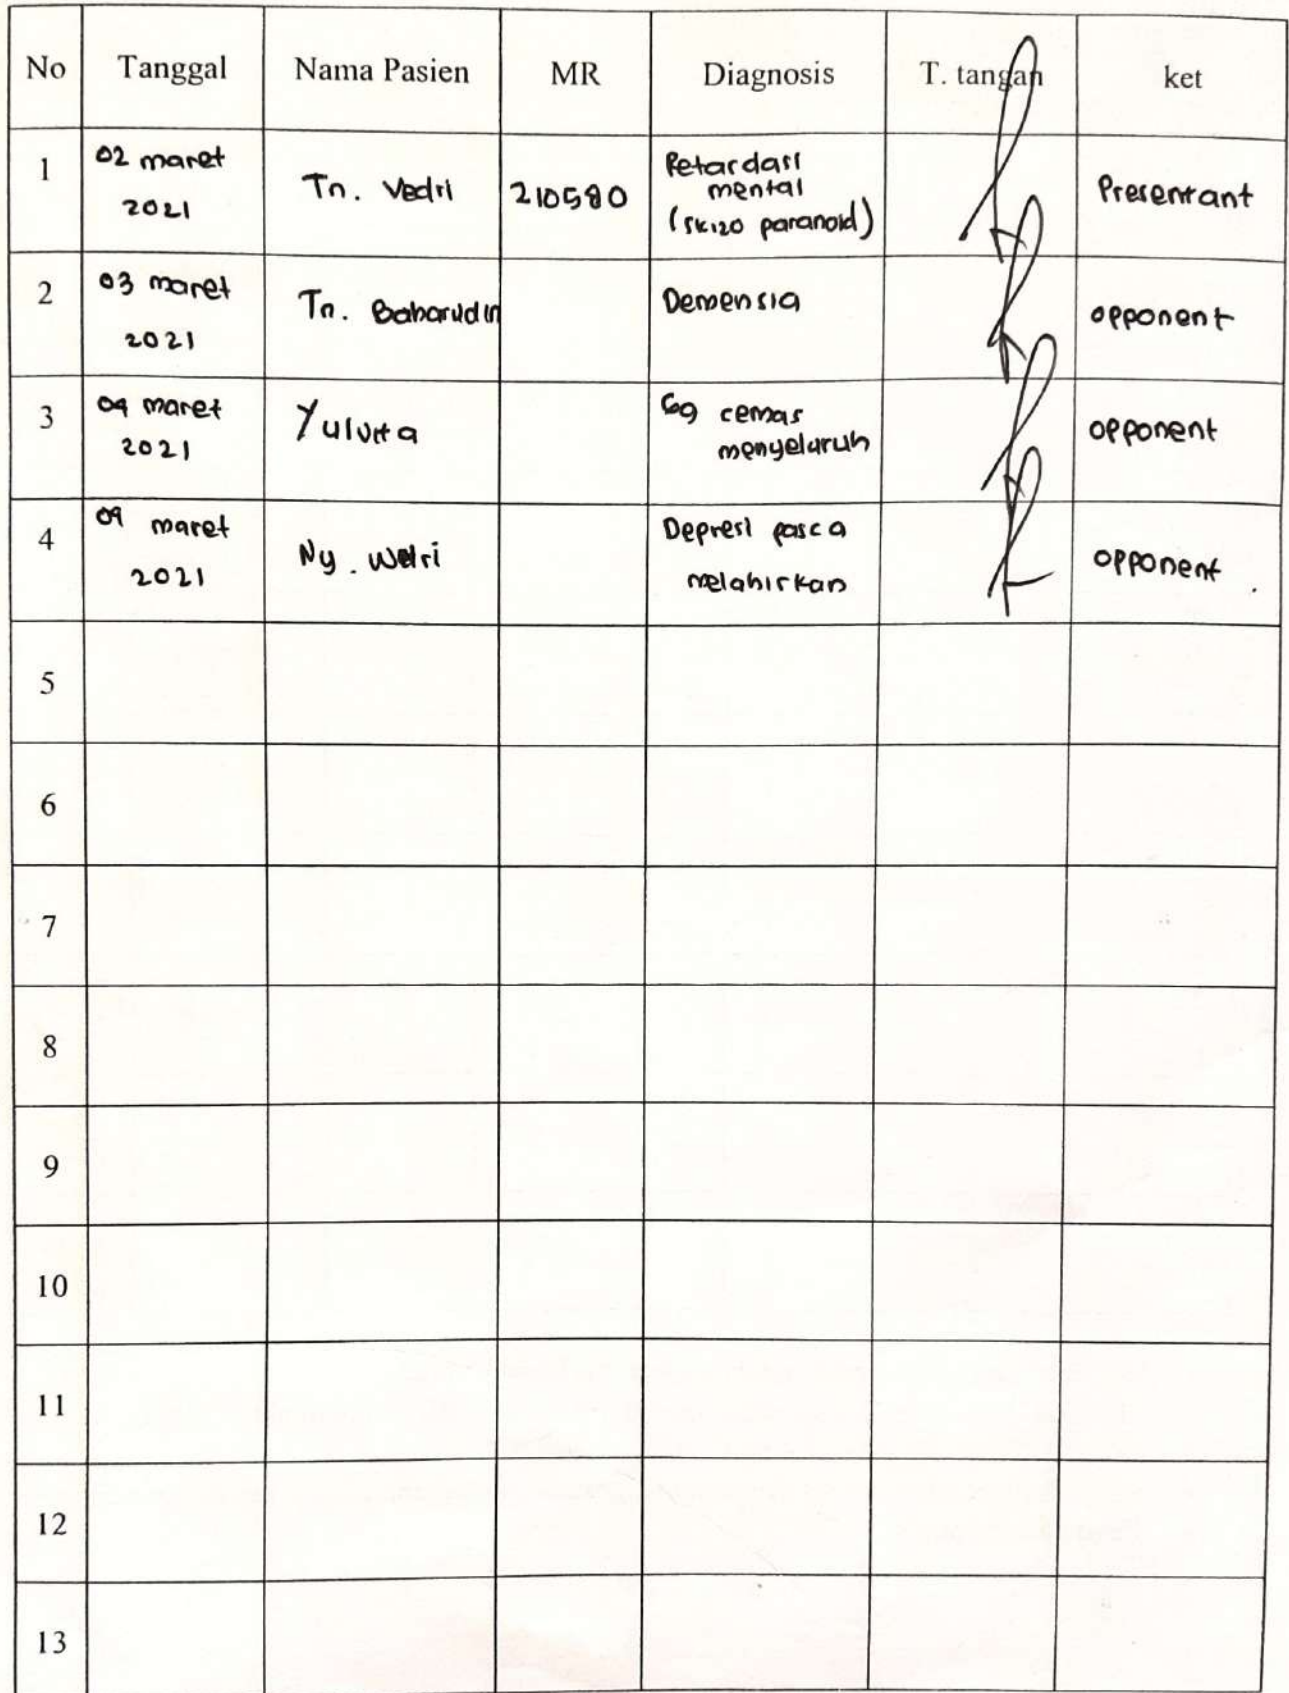 No Tanggal Nama Pasien MR Diagnosis T. tangan ket
1 02 maret 2021 Tn. Vedri 210580 Retardasi mental (skizo paranoid) Presentant
2 03 maret 2021 Tn. Baharudin Demensia opponent
3 04 maret 2021 Yulvita Gg cemas menyeluruh opponent
4 09 maret 2021 Ny. Welri Depresi pasca melahirkan opponent
5
6
7
8
9
10
11
12
13